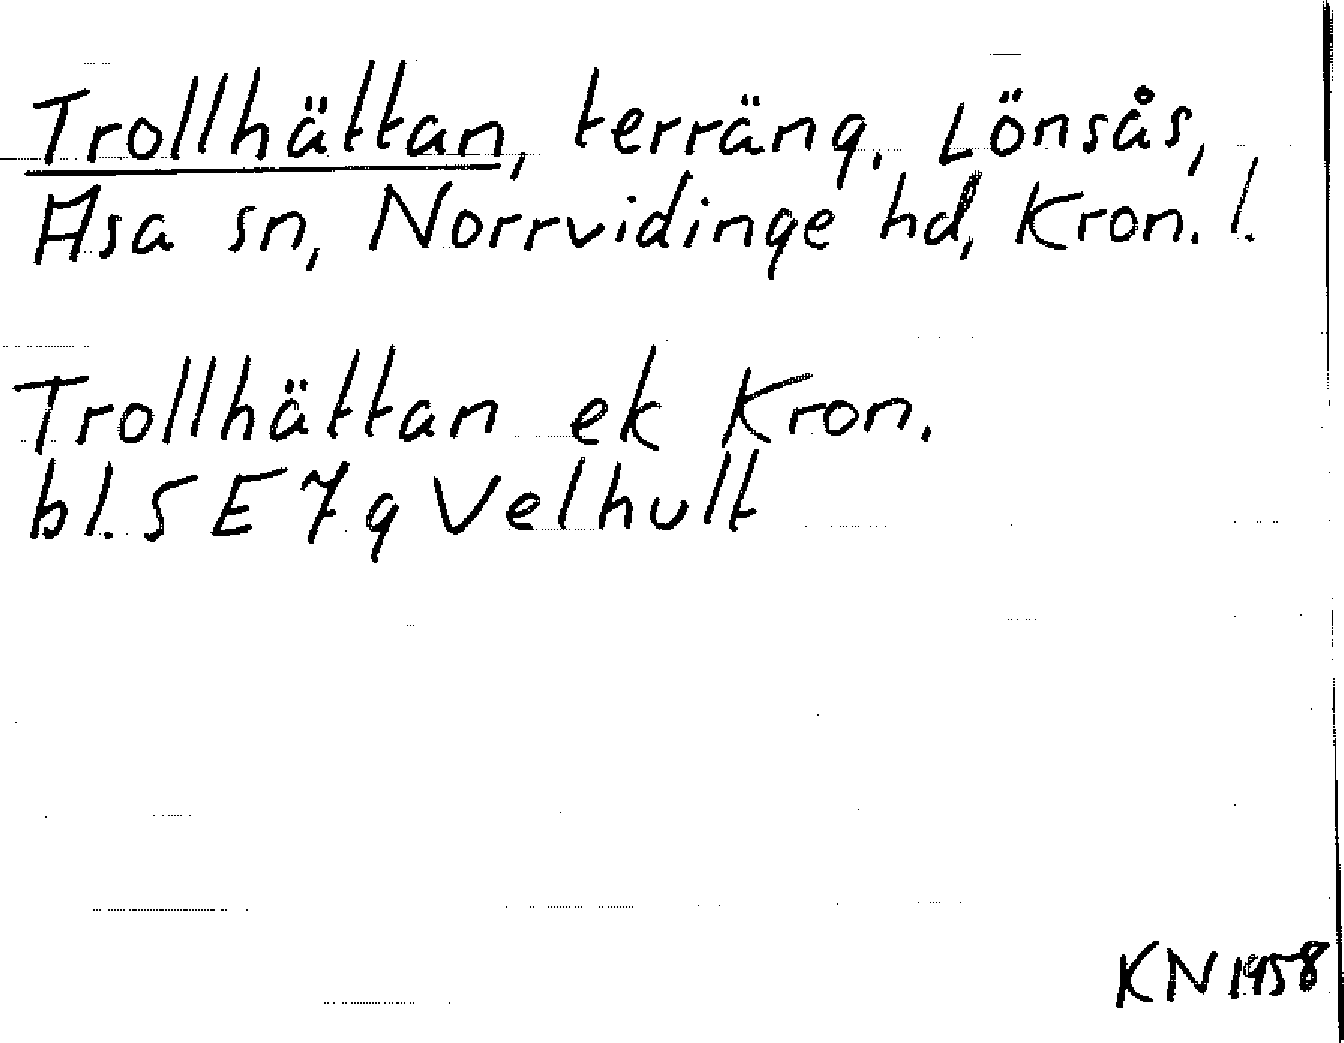 Trollhättan, terräng, Lönsås,
Asa sn, Norrvidinge hd, Kron. l.
Trollhättan ek Kron.
bl. 5 E 7 g Velhult
KN 1958